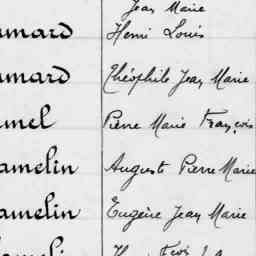 Jean Marie
amard Henri Louis
amard Théophile Jean Marie
amel Pierre Marie François
amelin Auguste Pierre Marie
amelin Eugène Jean Marie